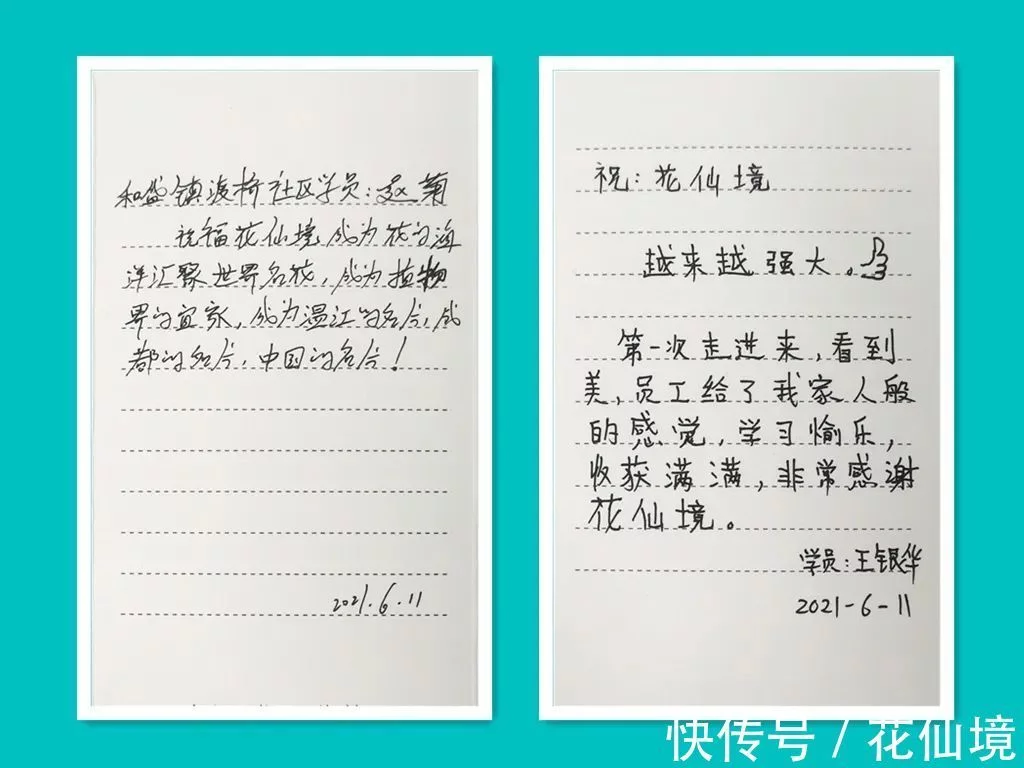 和盛镇渡桥社区学员：赵菊
祝福花仙境成为花的海
洋汇聚世界名花，成为植物
界的宜家，成为温江的名片，成
都的名片，中国的名片！
2021.6.11
祝：花仙境
越来越强大。
第一次走进来，看到
美，员工给了我家人般
的感觉，学习愉乐，
收获满满，非常感谢
花仙境。
学员：王银华
2021-6-11
快传号/花仙境